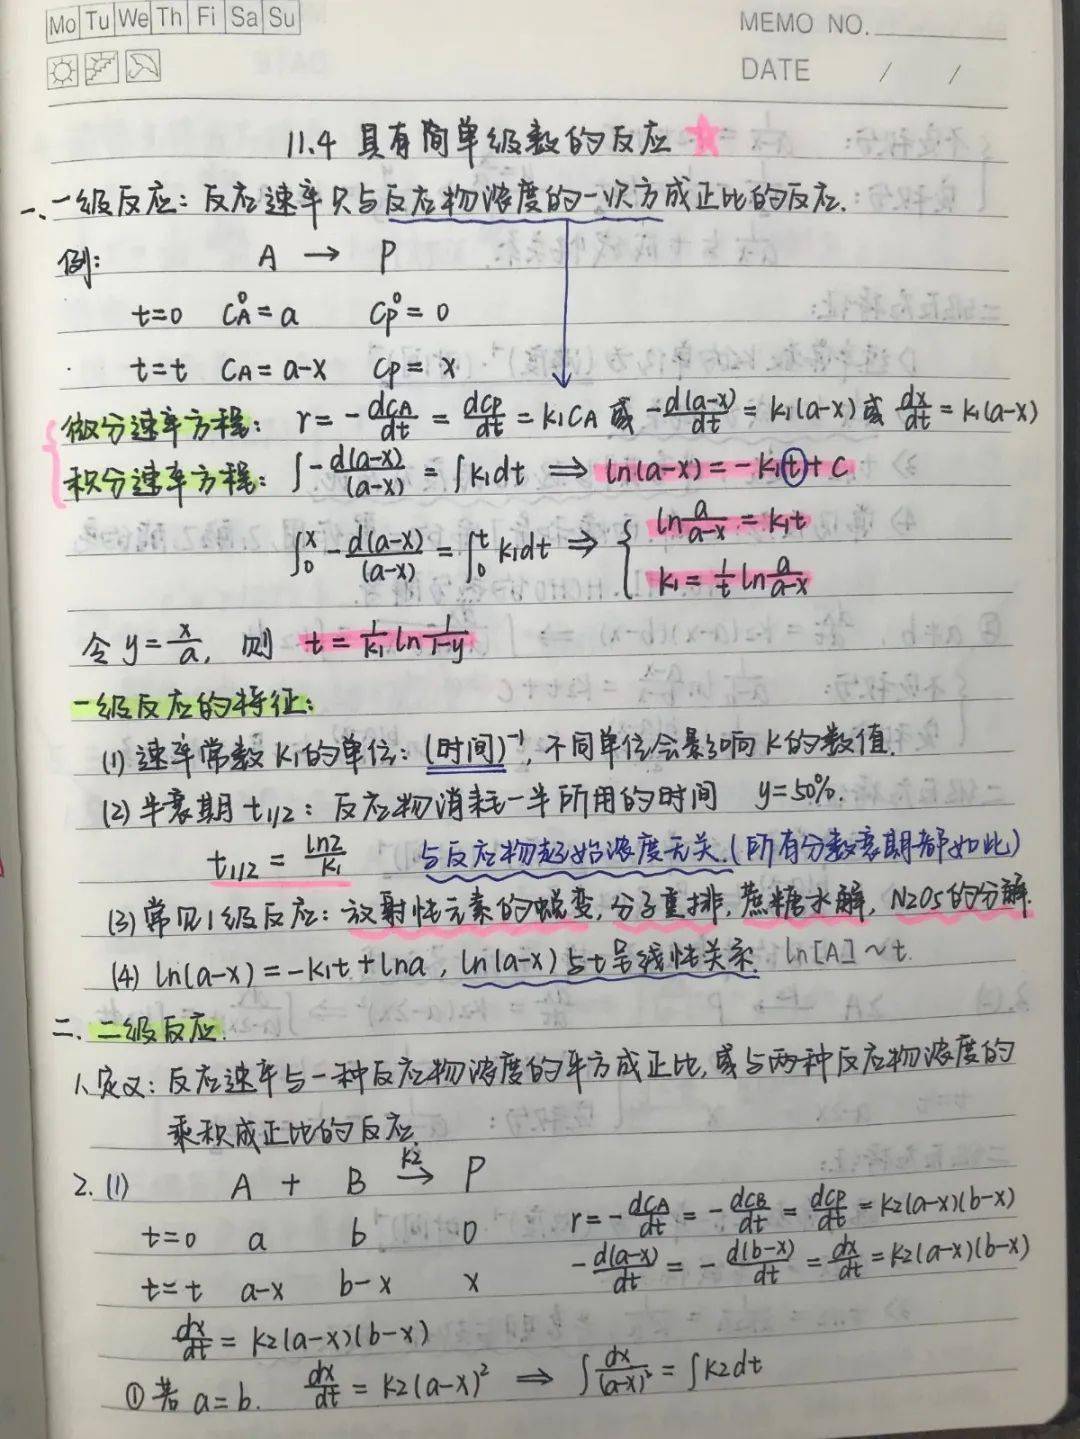 Mo Tu We Th Fi Sa Su
MEMO NO.
DATE / /
11.4 具有简单级数的反应
一、一级反应：反应速率只与反应物浓度的一次方成正比的反应.
例: A → P
t=0 C°A=a C°P=0
t=t CA=a-x CP=x
微分速率方程: r=-dCA/dt=dCP/dt=k1CA 或 -d(a-x)/dt=k1(a-x) 或 dx/dt=k1(a-x)
积分速率方程: ∫-d(a-x)/(a-x)=∫k1dt ⇒ ln(a-x)=-k1t+C
∫₀ˣ-d(a-x)/(a-x)=∫₀ᵗk1dt ⇒ { ln a/(a-x)=k1t
k1=1/t ln a/(a-x)
令 y=x/a, 则 t=1/k1 ln 1/(1-y)
一级反应的特征:
(1) 速率常数k1的单位: (时间)⁻¹, 不同单位会影响k的数值.
(2) 半衰期t1/2: 反应物消耗一半所用的时间 y=50%.
t1/2=ln2/k1 与反应物起始浓度无关.(所有分数衰期都如此)
(3) 常见1级反应: 放射性元素的蜕变, 分子重排, 蔗糖水解, N2O5的分解.
(4) ln(a-x)=-k1t+lna, ln(a-x)与t呈线性关系. ln[A]~t.
二. 二级反应.
1、定义: 反应速率与一种反应物浓度的平方成正比, 或与两种反应物浓度的
乘积成正比的反应.
2. (1) A + B —k2→ P
t=0 a b 0 r=-dCA/dt=-dCB/dt=dCP/dt=k2(a-x)(b-x)
t=t a-x b-x x -d(a-x)/dt=-d(b-x)/dt=dx/dt=k2(a-x)(b-x)
dx/dt=k2(a-x)(b-x)
① 若 a=b. dx/dt=k2(a-x)² ⇒ ∫dx/(a-x)²=∫k2dt